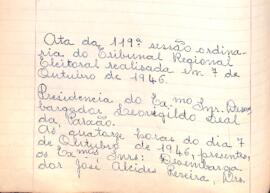 Ata da 119ª sessão ordina-
ria do Tribunal Regional
Eleitoral realisada em 7 de
Outubro de 1946.
Presidencia do Exmo Snr. Desem
bargador Leovegildo Leal
da Paixão.
As quatorze horas do dia 7
de Outubro de 1946, presentes,
os Exmos Snrs: Desembarga
dor José Alcides Pereira, Drs.